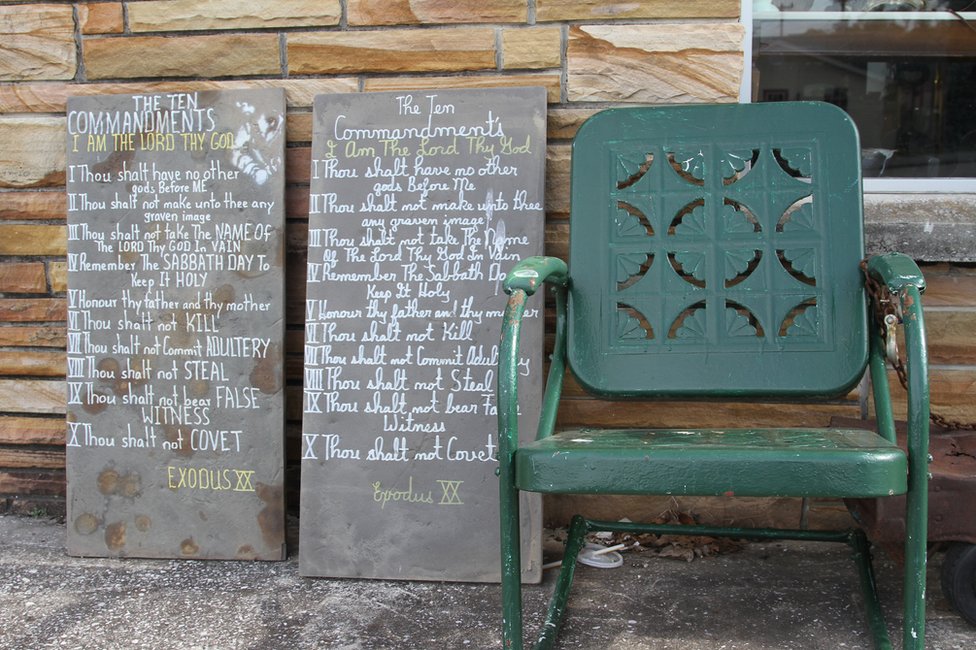 THE TEN
COMMANDMENTS
I AM THE LORD THY GOD
I Thou shalt have no other
gods Before ME
II Thou shalt not make unto thee any
graven image
III Thou shalt not take The NAME OF
The LORD Thy GOD In VAIN
IV Remember The SABBATH DAY To
Keep It HOLY
V Honour thy father and thy mother
VI Thou shalt not KILL
VII Thou shalt not Commit ADULTERY
VIII Thou shalt not STEAL
IX Thou shalt not bear FALSE
WITNESS
X Thou shalt not COVET
EXODUS XX
The Ten
Commandment's
I Am The Lord Thy God
I Thou shalt have no other
gods Before Me
II Thou shalt not make unto thee
any graven image
III Thou shalt not take The Name
Of The Lord Thy God In Vain
IV Remember The Sabbath Da
Keep It Holy
V Honour thy father and thy m
VI Thou shalt not Kill
VII Thou shalt not Commit Adultery
VIII Thou shalt not Steal
IX Thou shalt not bear Fals
Witness
X Thou shalt not Covet
Exodus XX